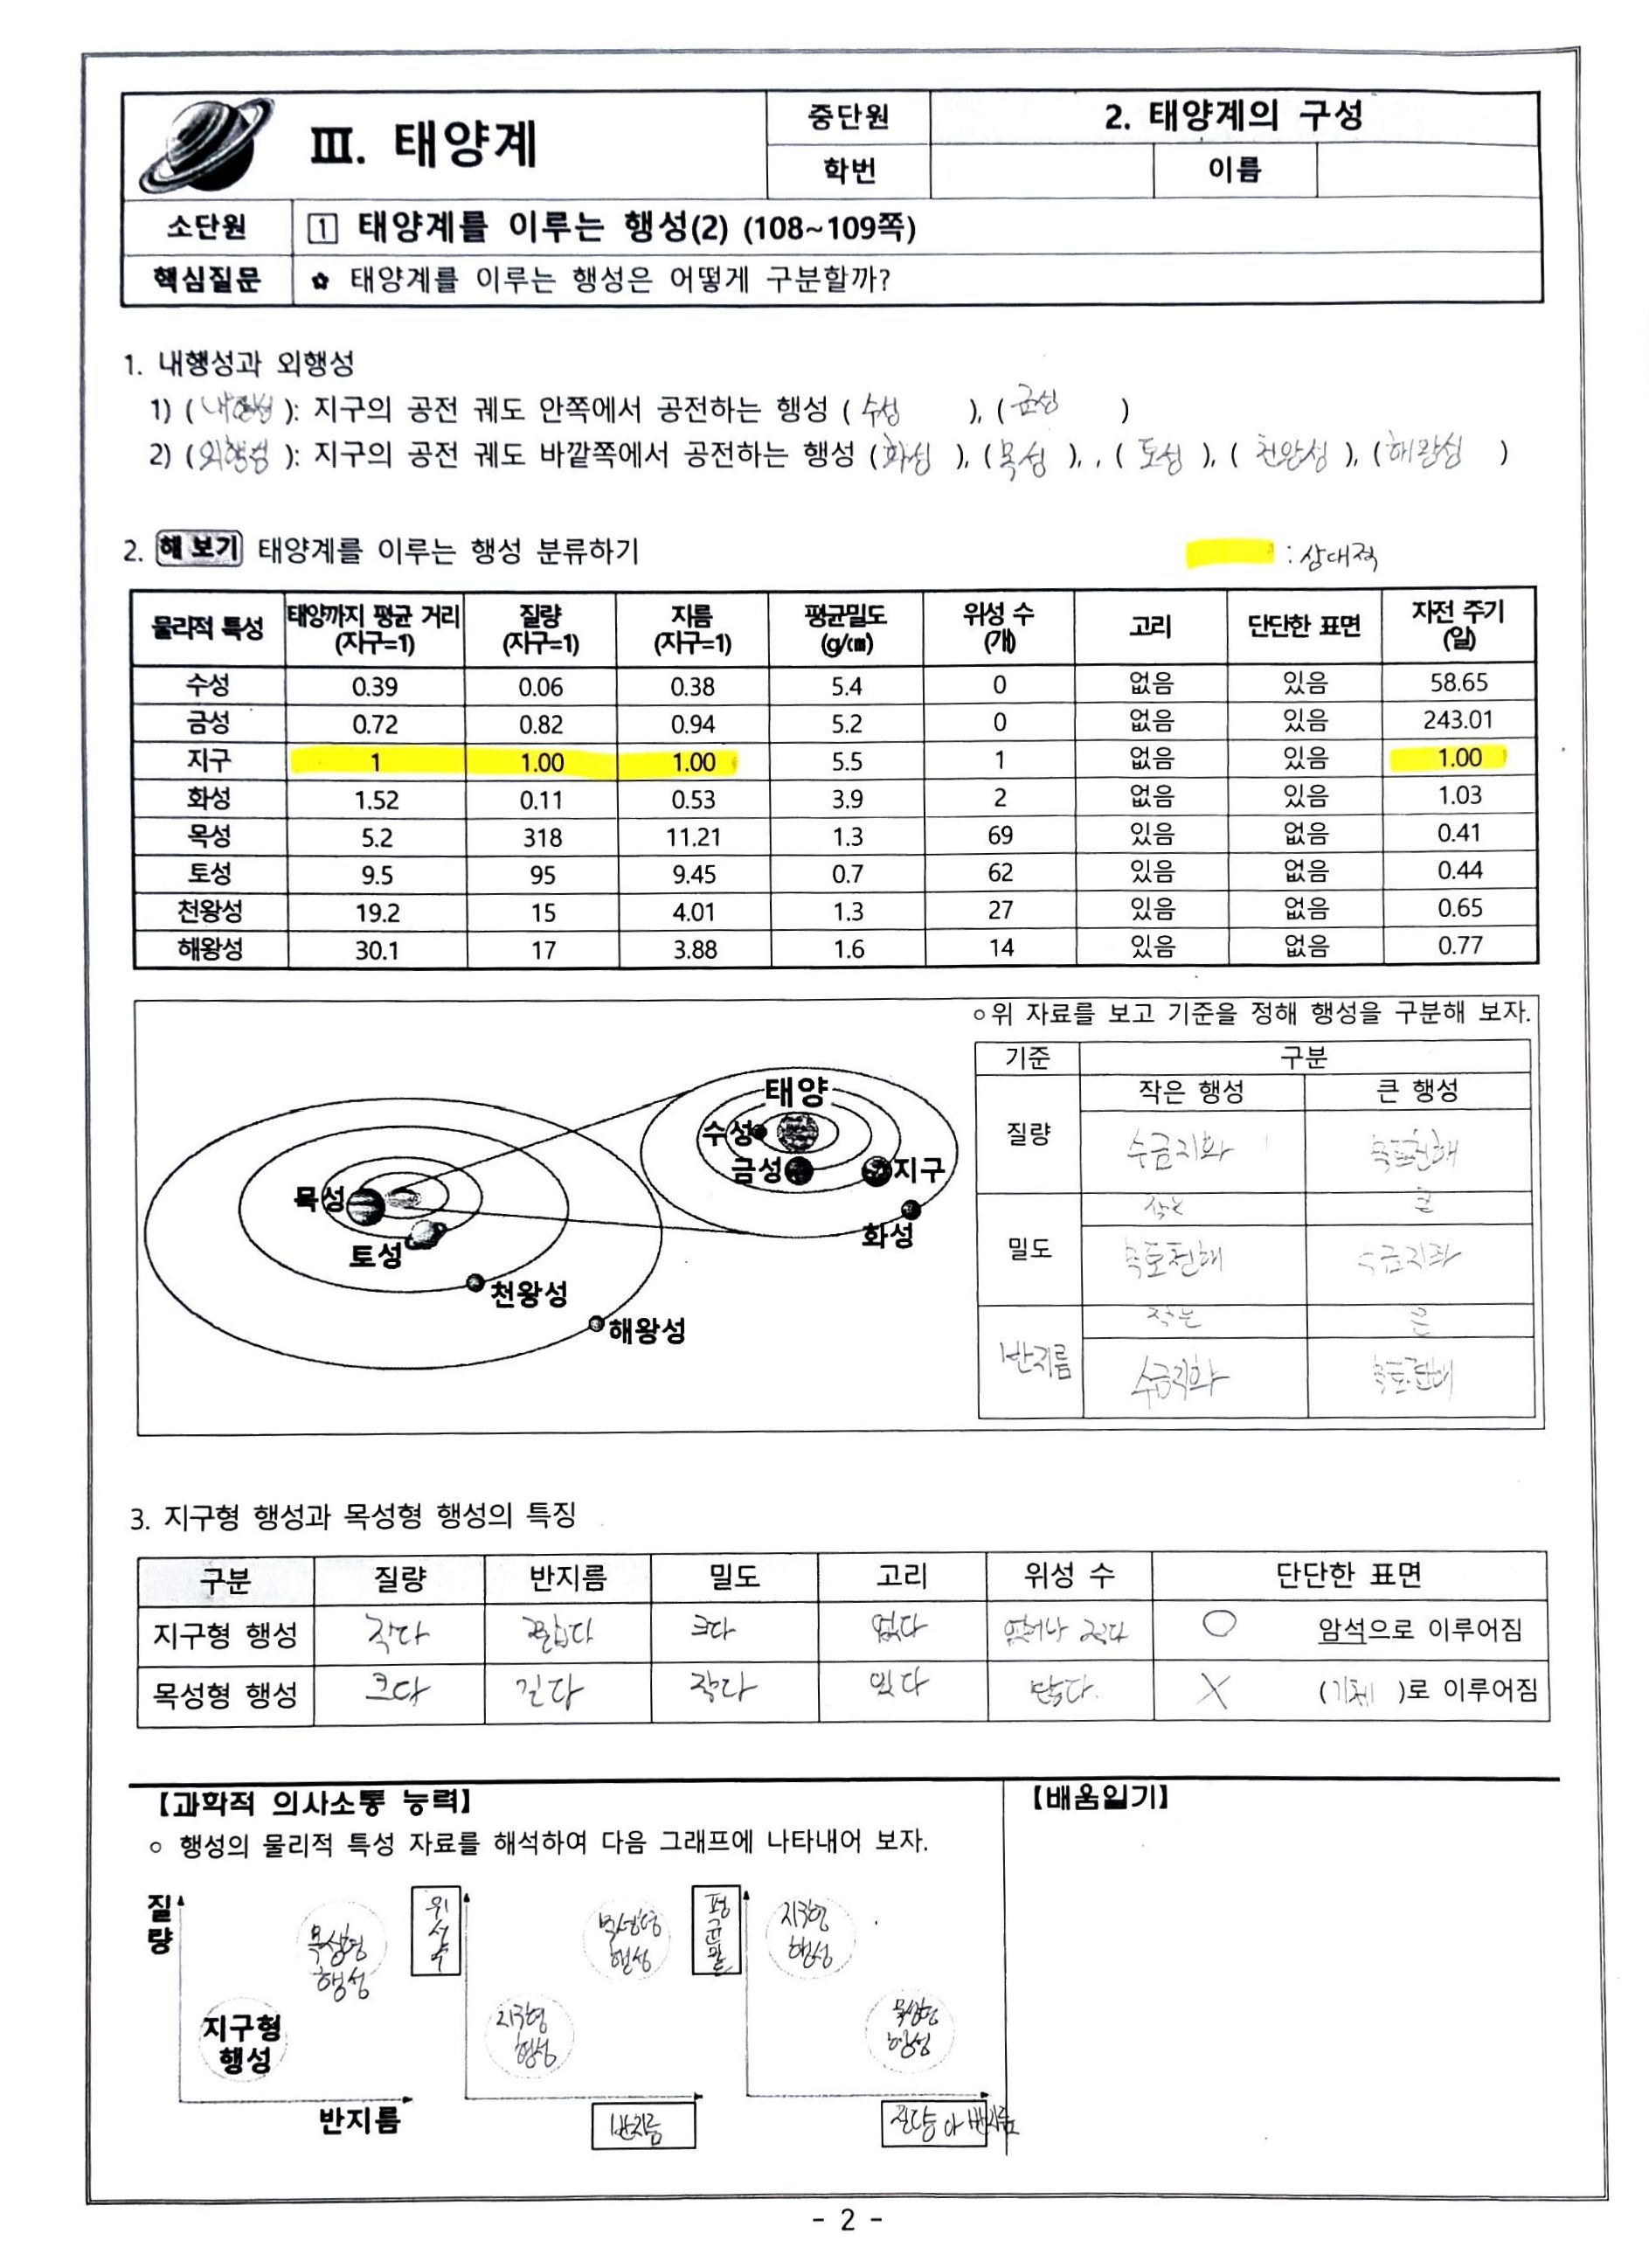 Ⅲ. 태양계
중단원
2. 태양계의 구성
학번
이름
소단원
1 태양계를 이루는 행성(2) (108~109쪽)
핵심질문
✿ 태양계를 이루는 행성은 어떻게 구분할까?
1. 내행성과 외행성
1) (내행성): 지구의 공전 궤도 안쪽에서 공전하는 행성 (수성), (금성)
2) (외행성): 지구의 공전 궤도 바깥쪽에서 공전하는 행성 (화성), (목성), , (토성), (천왕성), (해왕성)
2. 해 보기 태양계를 이루는 행성 분류하기
: 상대적
물리적 특성 태양까지 평균 거리 (지구=1) 질량 (지구=1) 지름 (지구=1) 평균밀도 (g/㎤) 위성 수 (개) 고리 단단한 표면 자전 주기 (일)
수성 0.39 0.06 0.38 5.4 0 없음 있음 58.65
금성 0.72 0.82 0.94 5.2 0 없음 있음 243.01
지구 1 1.00 1.00 5.5 1 없음 있음 1.00
화성 1.52 0.11 0.53 3.9 2 없음 있음 1.03
목성 5.2 318 11.21 1.3 69 있음 없음 0.41
토성 9.5 95 9.45 0.7 62 있음 없음 0.44
천왕성 19.2 15 4.01 1.3 27 있음 없음 0.65
해왕성 30.1 17 3.88 1.6 14 있음 없음 0.77
태양
수성
금성
지구
화성
목성
토성
천왕성
해왕성
○위 자료를 보고 기준을 정해 행성을 구분해 보자.
기준 구분
질량
작은 행성 큰 행성
수금지화 목토천해
밀도
작은 큰
목토천해 수금지화
반지름
작은 큰
수금지화 목토천해
3. 지구형 행성과 목성형 행성의 특징
구분 질량 반지름 밀도 고리 위성 수 단단한 표면
지구형 행성 작다 짧다 크다 없다 없거나 적다 ○ 암석으로 이루어짐
목성형 행성 크다 길다 작다 있다 많다. X (기체)로 이루어짐
【과학적 의사소통 능력】
○ 행성의 물리적 특성 자료를 해석하여 다음 그래프에 나타내어 보자.
질량
목성형 행성
지구형 행성
반지름
위성수
목성형 행성
지구형 행성
반지름
평균밀도
지구형 행성
목성형 행성
질량 아 반지름
【배움일기】
- 2 -